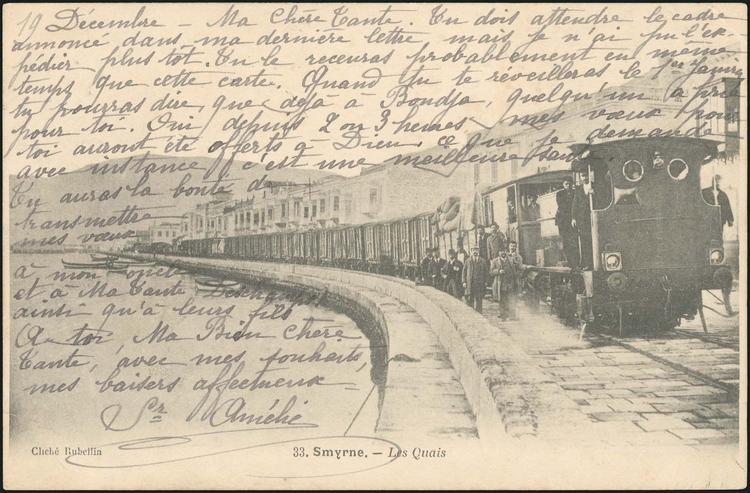 19 Décembre – Ma Chère Tante. Tu dois attendre le cadre
annoncé dans ma dernière lettre mais je n'ai pu l'ex-
pédier plus tôt. Tu le recevras probablement en même
temps que cette carte. Quand tu te réveilleras le 1er Janvier
tu pourras dire que déjà à Boudja, quelqu'un a prié
pour toi. Oui depuis 2 ou 3 heures mes vœux pour
toi auront été offerts à Dieu, ce que je demande
avec instance c'est une meilleure santé
Tu auras la bonté de
transmettre
mes vœux
à mon oncle
et à Ma Tante
ainsi qu'à leurs fils
A toi Ma Bien Chère
Tante, avec mes souhaits,
mes baisers affectueux –
Sr Amélie
Cliché Rubellin
33. Smyrne. – Les Quais